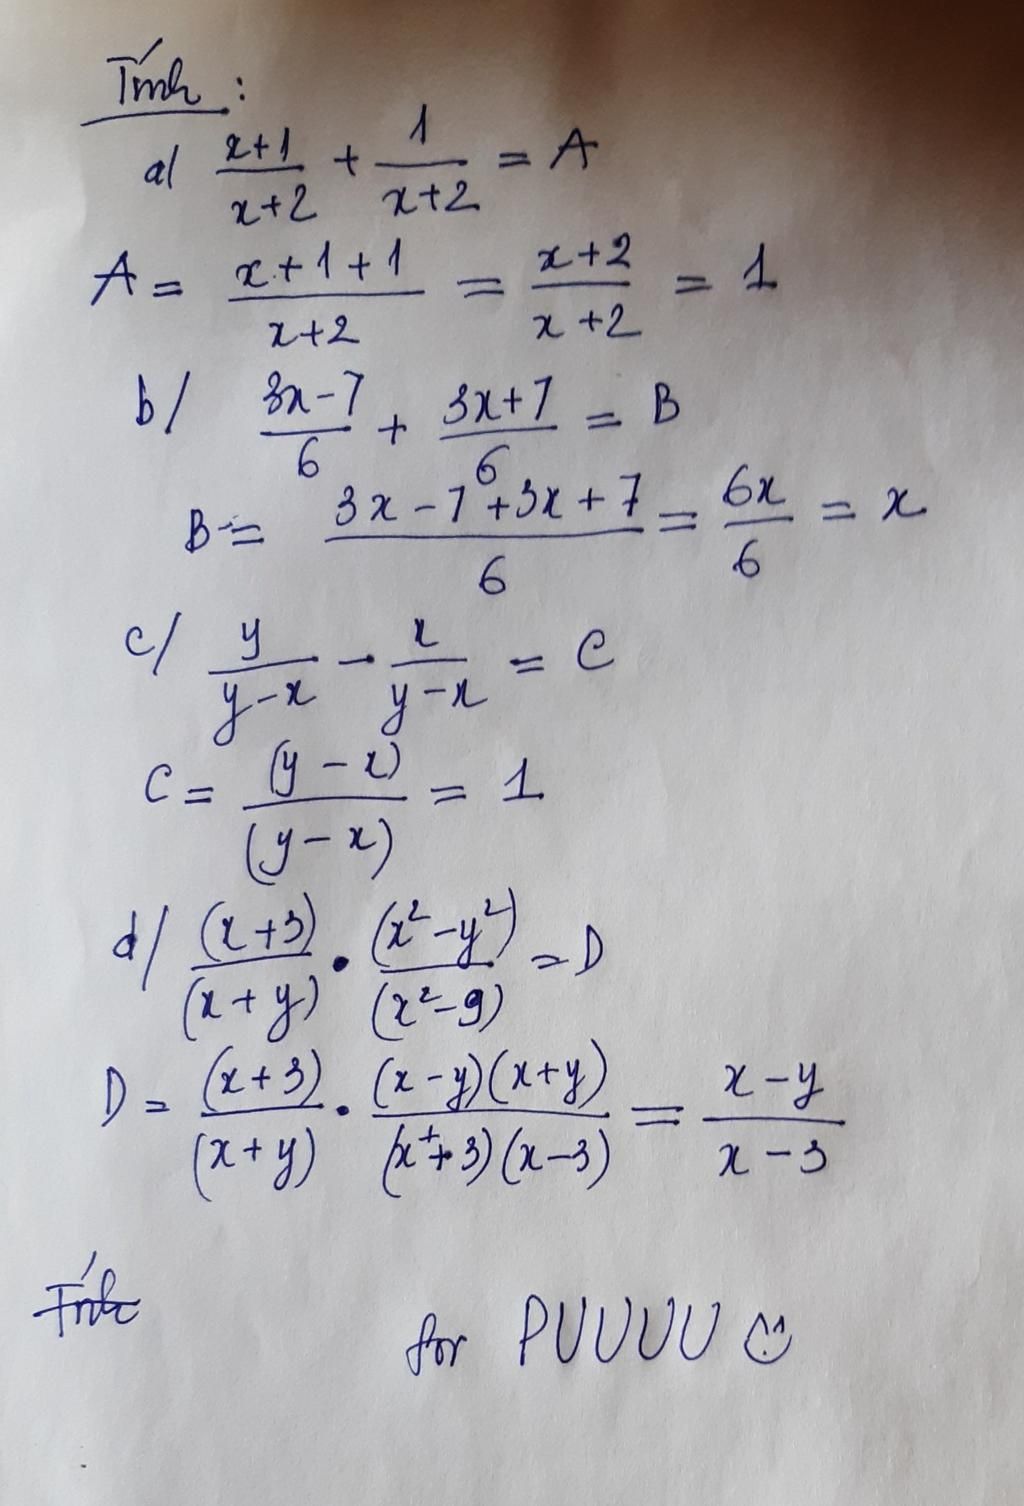 Tính :
a/ \frac{x+1}{x+2} + \frac{1}{x+2} = A
A = \frac{x+1+1}{x+2} = \frac{x+2}{x+2} = 1
b/ \frac{3x-7}{6} + \frac{3x+7}{6} = B
B = \frac{3x-7+3x+7}{6} = \frac{6x}{6} = x
c/ \frac{y}{y-x} - \frac{x}{y-x} = C
C = \frac{(y-x)}{(y-x)} = 1
d/ \frac{(x+3)}{(x+y)} . \frac{(x²-y²)}{(x²-9)} = D
D = \frac{(x+3)}{(x+y)} . \frac{(x-y)(x+y)}{(x+3)(x-3)} = \frac{x-y}{x-3}
Tính
for PUUUU